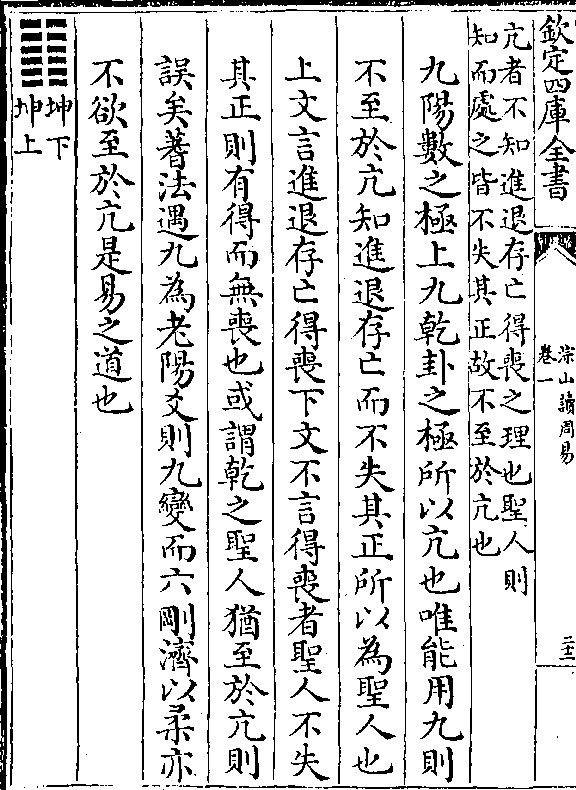 欽定四庫全書
淙山讀周易
卷一
二十二
亢者不知進退存亡得喪之理也聖人則
知而處之皆不失其正故不至於亢也
九陽數之極上九乾卦之極所以亢也唯能用九則
不至於亢知進退存亡而不失其正所以為聖人也
上文言進退存亡得喪下文不言得喪者聖人不失
其正則有得而無喪也或謂乾之聖人猶至於亢則
誤矣蓍法遇九為老陽爻則九變而六剛濟以柔亦
不欲至於亢是易之道也
䷁
坤下
坤上